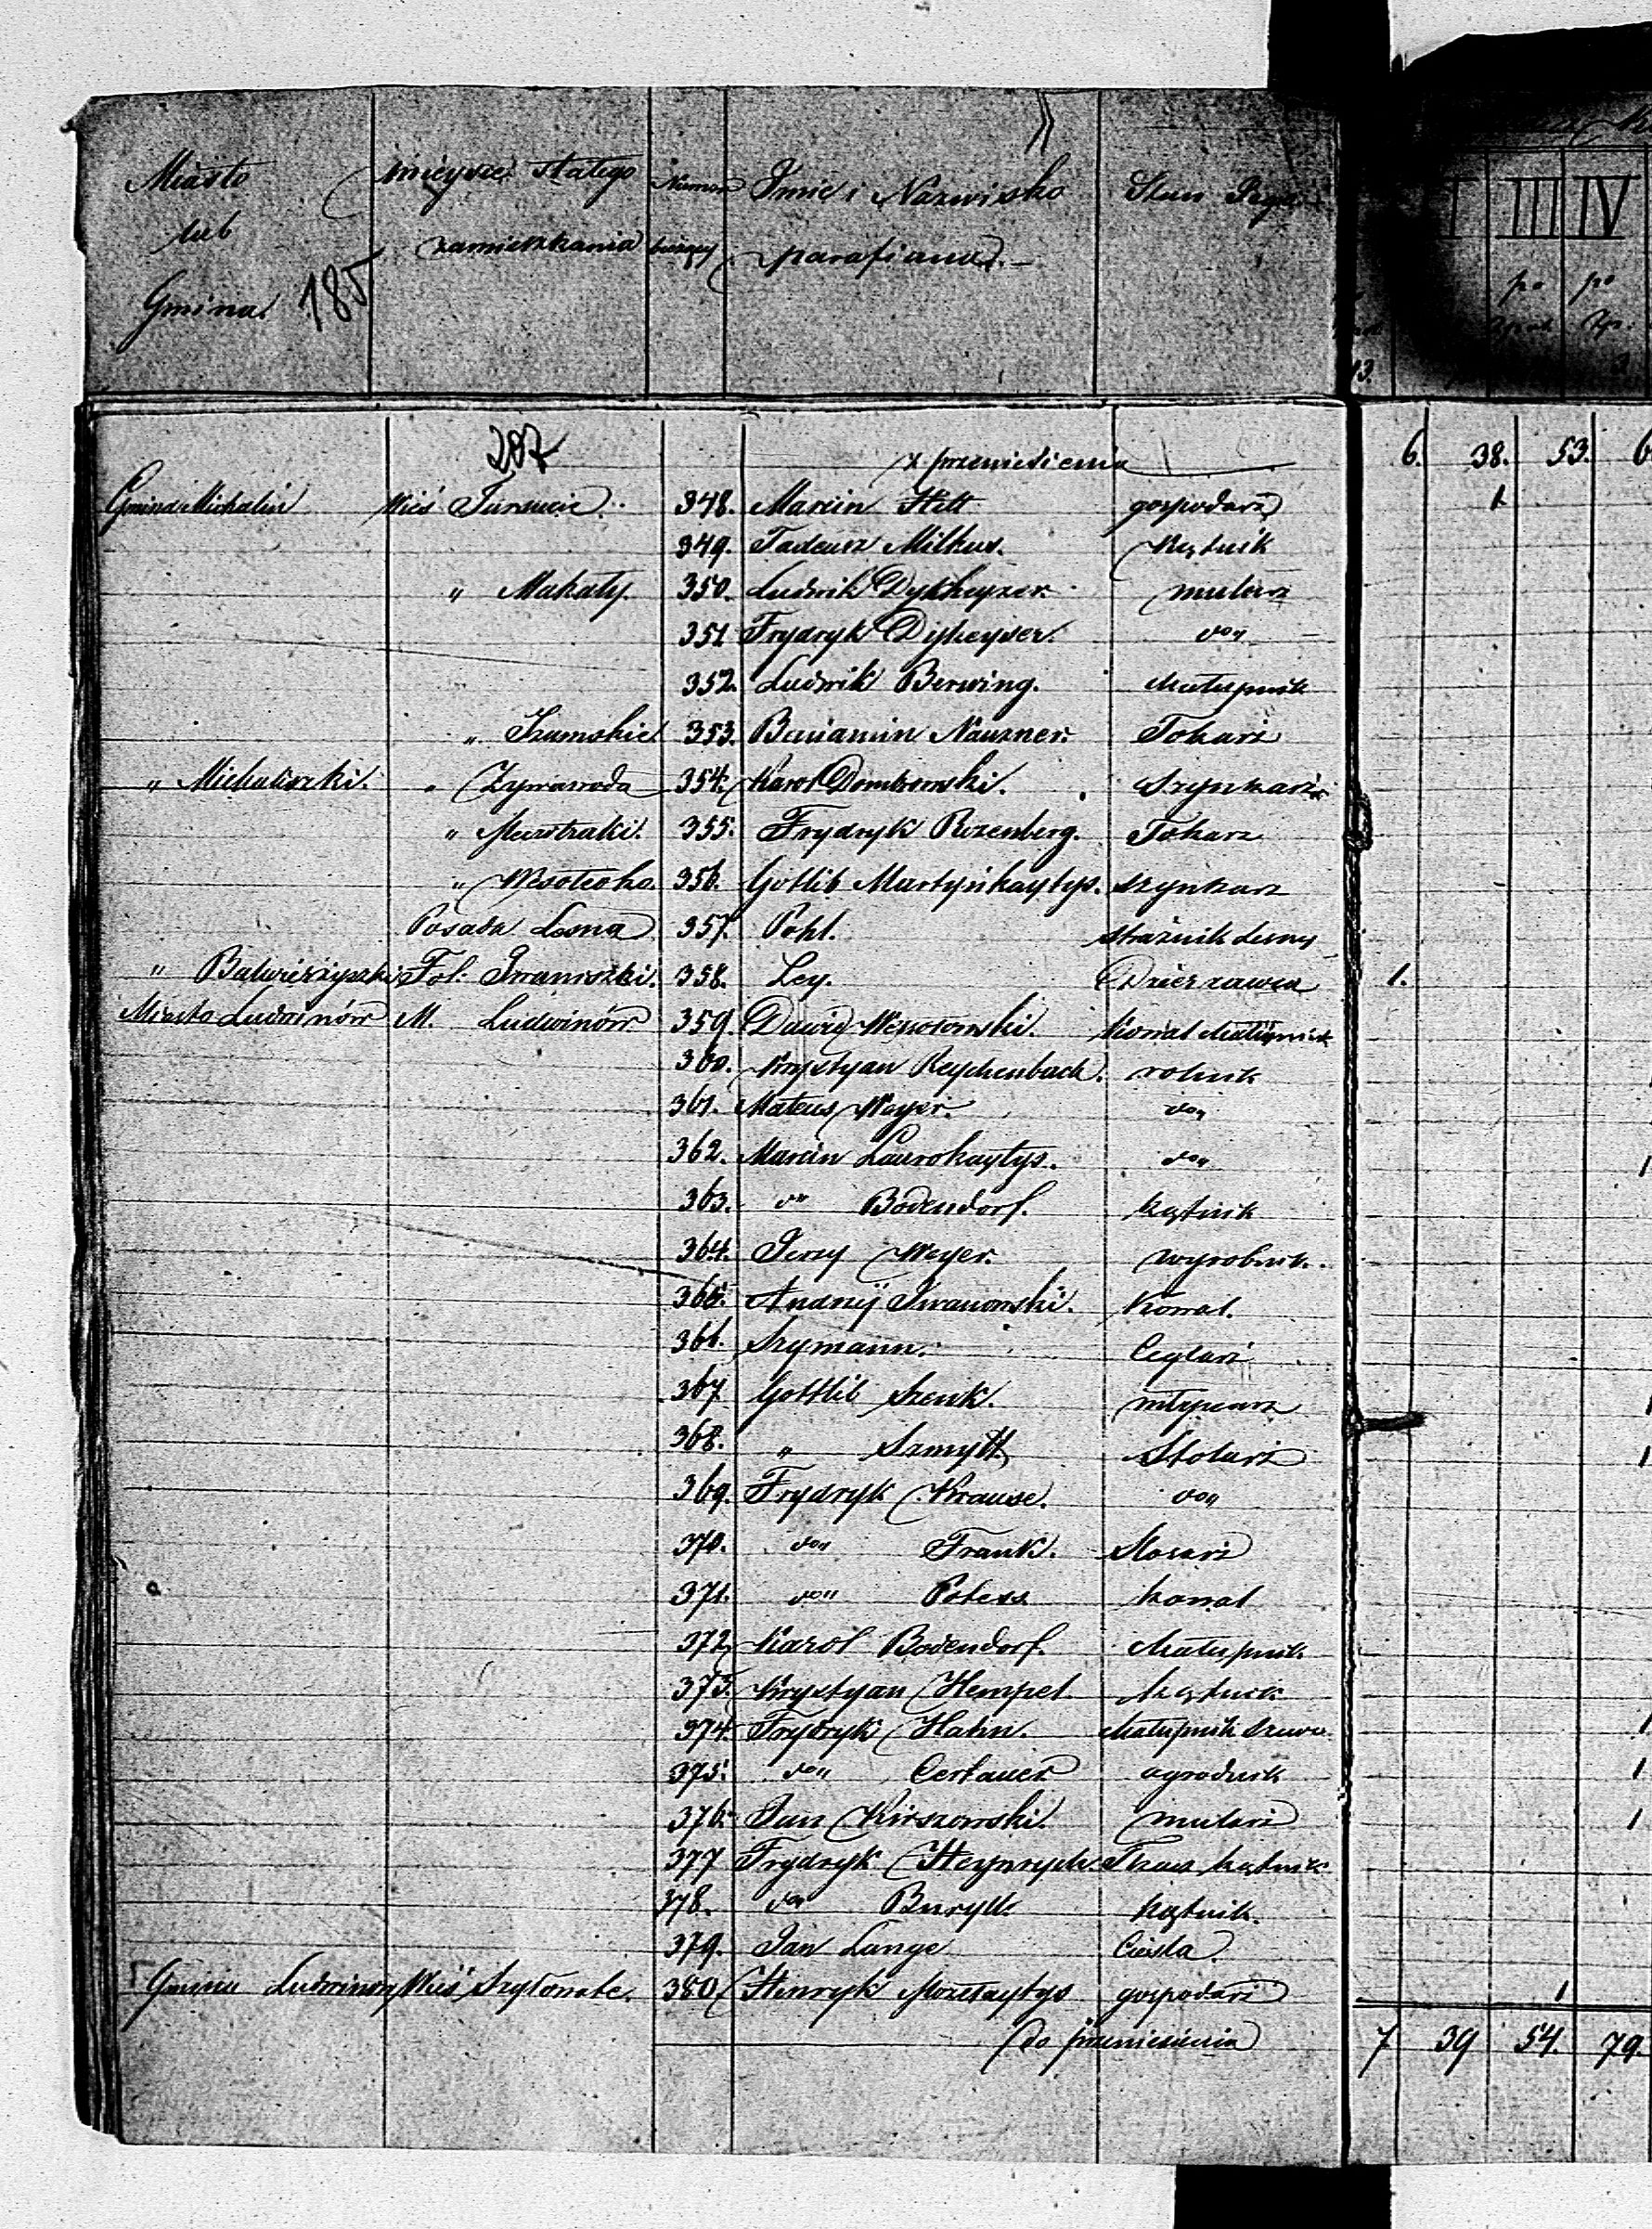 Miasto lub Gmina. 185 mieysce stałego zamieszkania Numer bieżący Imie i Nazwisko parafiana. Stan
III IV
po po
207
z przeniesienia 6. 38. 53. 6
Gmina Michalin Wieś 348. Marcin Hitt gospodarz 1
349. Tadeusz Milkus. Kątnik
" Makały. 350. Ludwik Dykheyzer. mularz
351 Frydryk Dykeyser. do"
352. Ludwik Berwing. chałupnik
" Szumskie 353. Beniamin Nauzner. Tokarz
" Michaliszki. " Zyprawoda 354. Karol Dombrowski. Szynkarz
" 355. Frydryk Rozenberg. Tokarz
" Wesołocha. 356. Gotlib Martynkaytys. szynkarz
Posada Lesna 357. Pohl. strażnik Lesny
" Balwierzyszki Fol: Iwaniszki. 358. Ley. Dzierzawca 1.
Miasto Ludwinów M. Ludwinów 359. Dawid Wessołowski. Kowal chałupnik
360. Krystyan Reychenbach. rolnik
361. Mateus Meyer. do"
362. Marcin Laurokaytys. do" 1
363. do Bodendorf. kątnik
364. Jerzy Meyer. wyrobnik.
365. Andrzy Iwanowski. Kowal.
366. Szymann. Ceglarz
367 Gottlib Szenk. młynarz 1
368. " Szmytt. Stolarz 1
369. Frydryk Krause. do"
370. do" Frank. slosarz
371. do" Peless kowal
372. Karol Bodendorf. chałupnik
373. Krystyan Hempel kątnik
374. Frydryk Hahn. chałupnik szewc. 1
375. do" Cerfauer ogrodnik 1
376. Jan Kirszowski. mularz 1
377 Frydryk Heynrych. Tkacz kątnik
378. do Buryll. kątnik.
379. Jan Lange Ciesla.
Gmina Ludwinow Wieś Szyłonale. 380 Henryk gospodarz 1
do przeniesienia 7 39 54. 79.